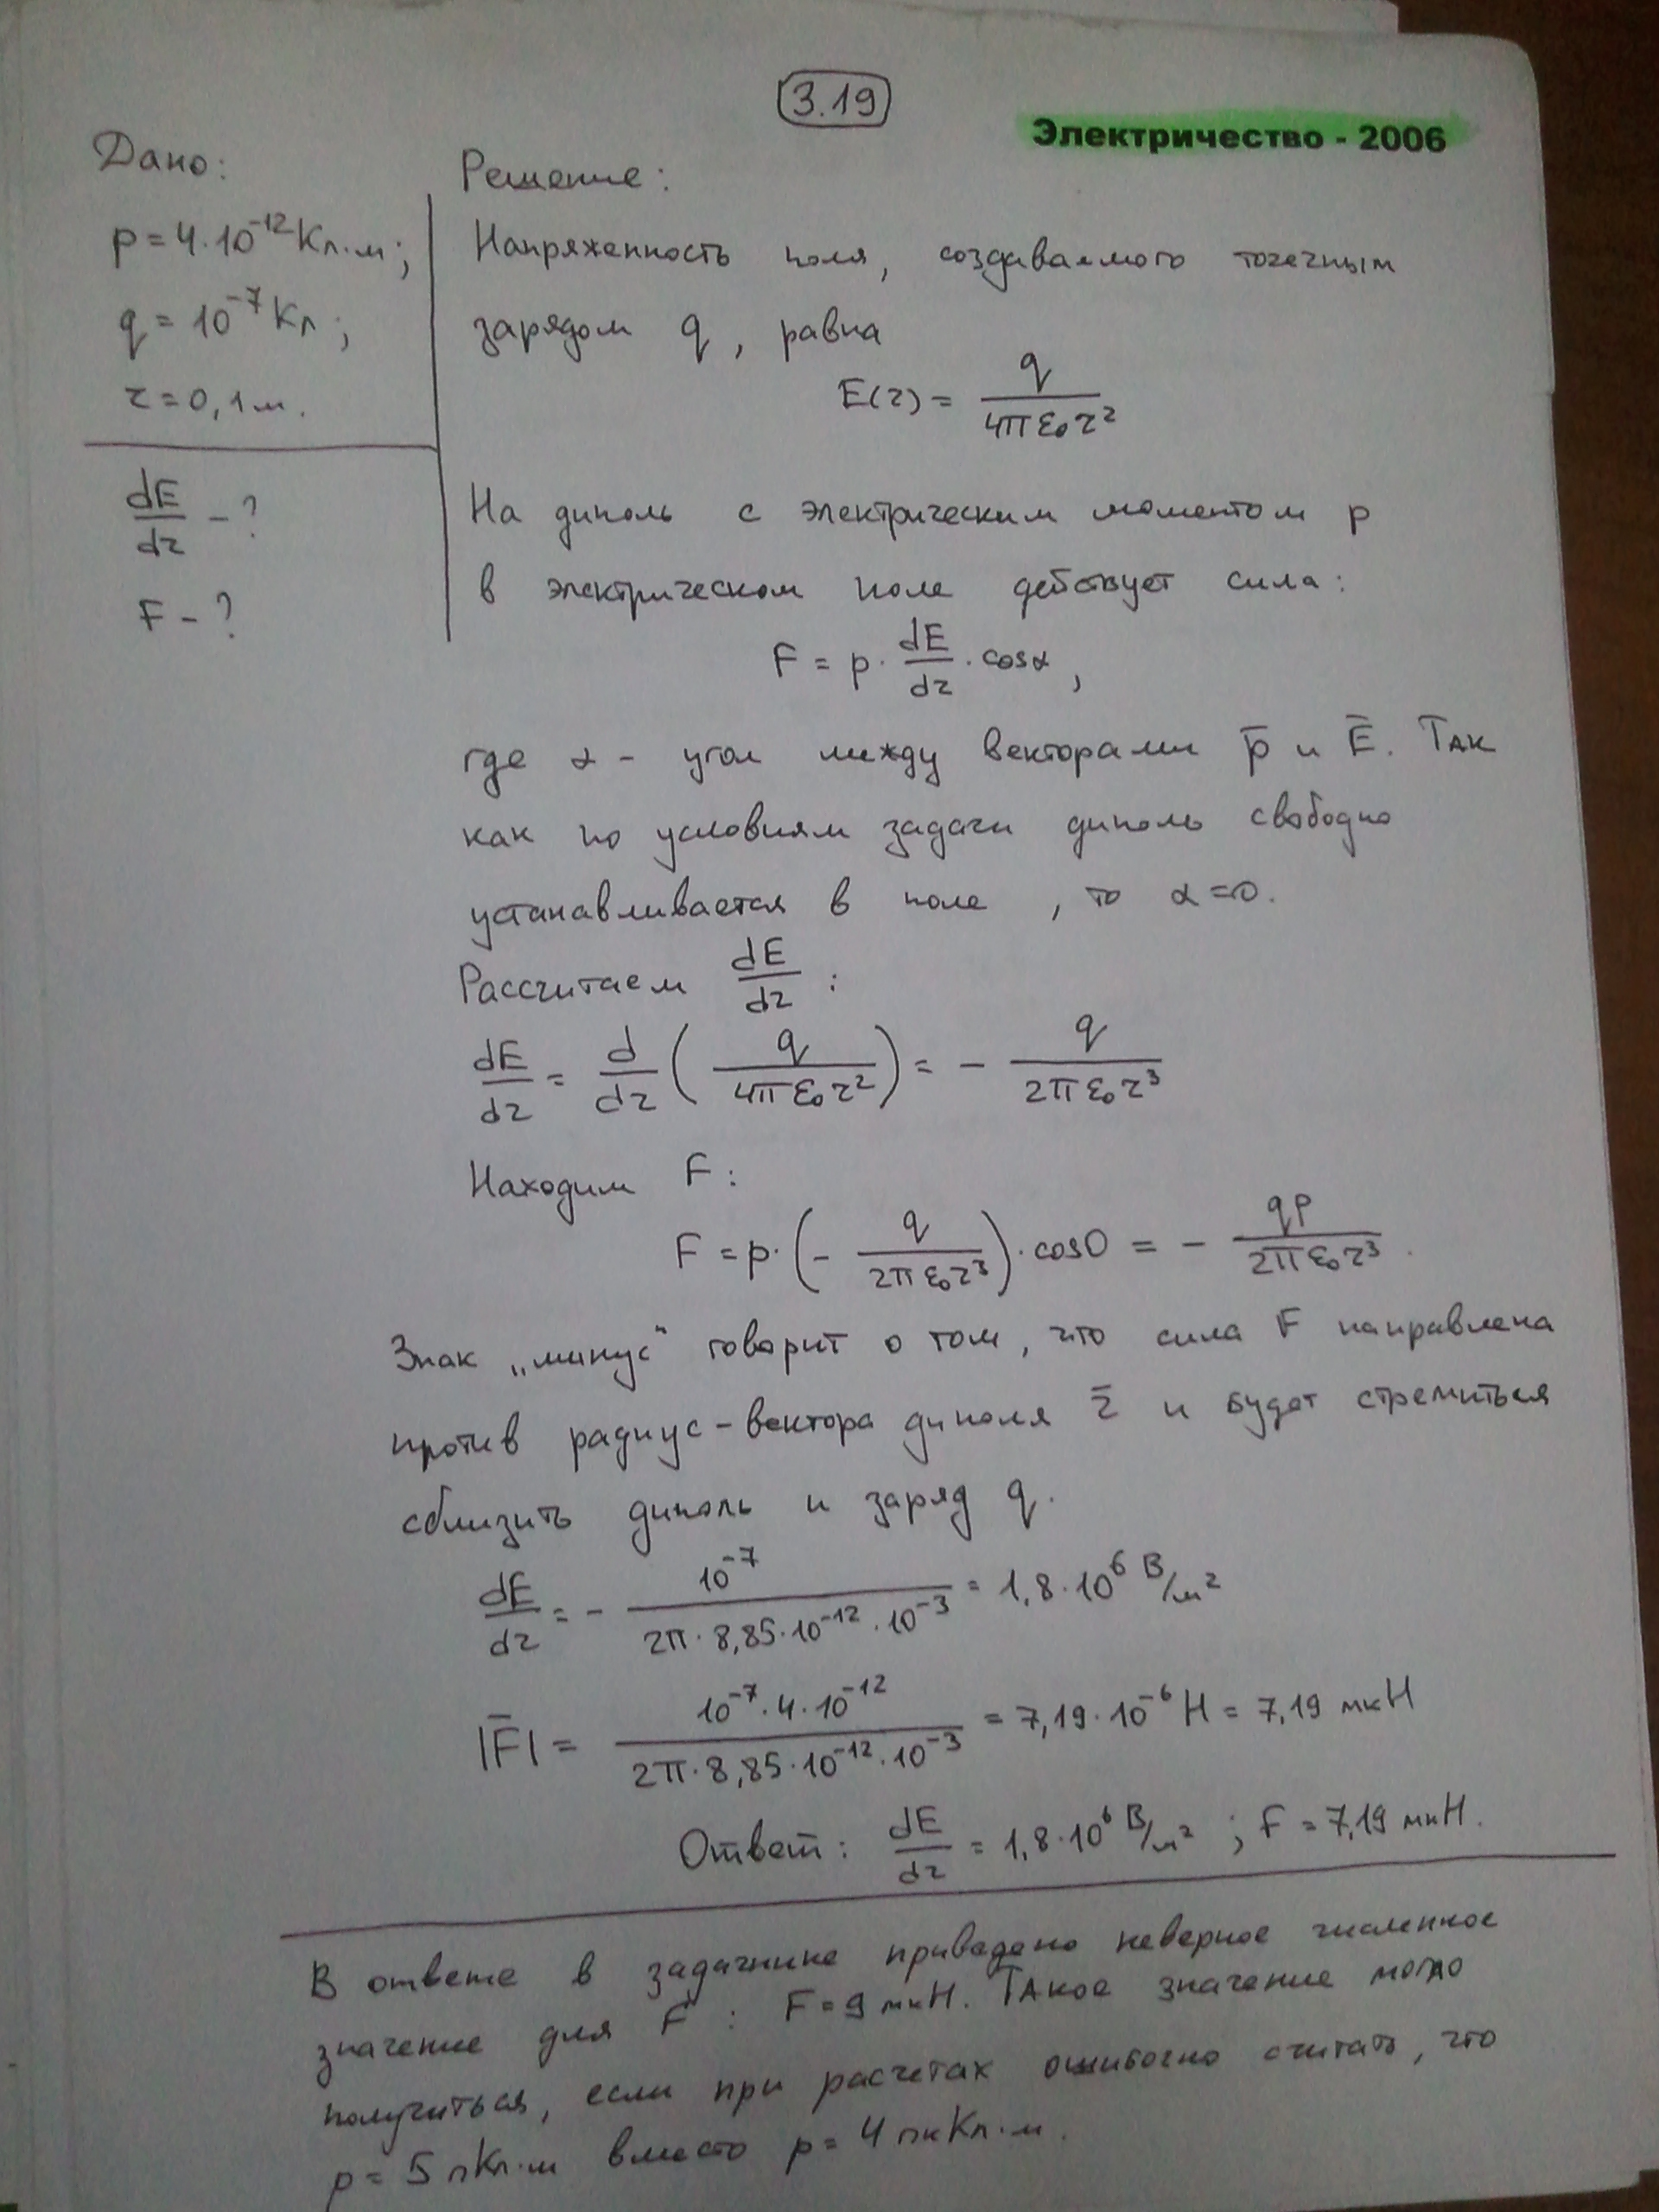 3.19
Электричество - 2006
Дано:
p = 4·10⁻¹² Кл·м;
q = 10⁻⁷ Кл;
r = 0,1 м.
dE/dr - ?
F - ?
Решение:
Напряженность поля, создаваемого точечным
зарядом q, равна
E(r) = q/(4πε₀r²)
На диполь с электрическим моментом p
в электрическом поле действует сила:
F = p · dE/dr · cosα,
где α - угол между векторами p̄ и Ē. Так
как по условиям задачи диполь свободно
устанавливается в поле, то α = 0.
Рассчитаем dE/dr :
dE/dr = d/dr (q/(4πε₀r²)) = - q/(2πε₀r³)
Находим F:
F = p·(- q/(2πε₀r³))·cos0 = - qp/(2πε₀r³).
Знак „минус“ говорит о том, что сила F направлена
против радиус-вектора диполя r̄ и будет стремиться
сблизить диполь и заряд q.
dE/dr = - 10⁻⁷/(2π·8,85·10⁻¹²·10⁻³) = 1,8·10⁶ В/м²
|F̄| = 10⁻⁷·4·10⁻¹²/(2π·8,85·10⁻¹²·10⁻³) = 7,19·10⁻⁶ Н = 7,19 мкН
Ответ: dE/dr = 1,8·10⁶ В/м² ; F = 7,19 мкН.
В ответе в задачнике приведено неверное численное
значение для F : F = 9 мкН. Такое значение могло
получиться, если при расчетах ошибочно считать, что
p = 5 пКл·м вместо p = 4 пкКл·м.